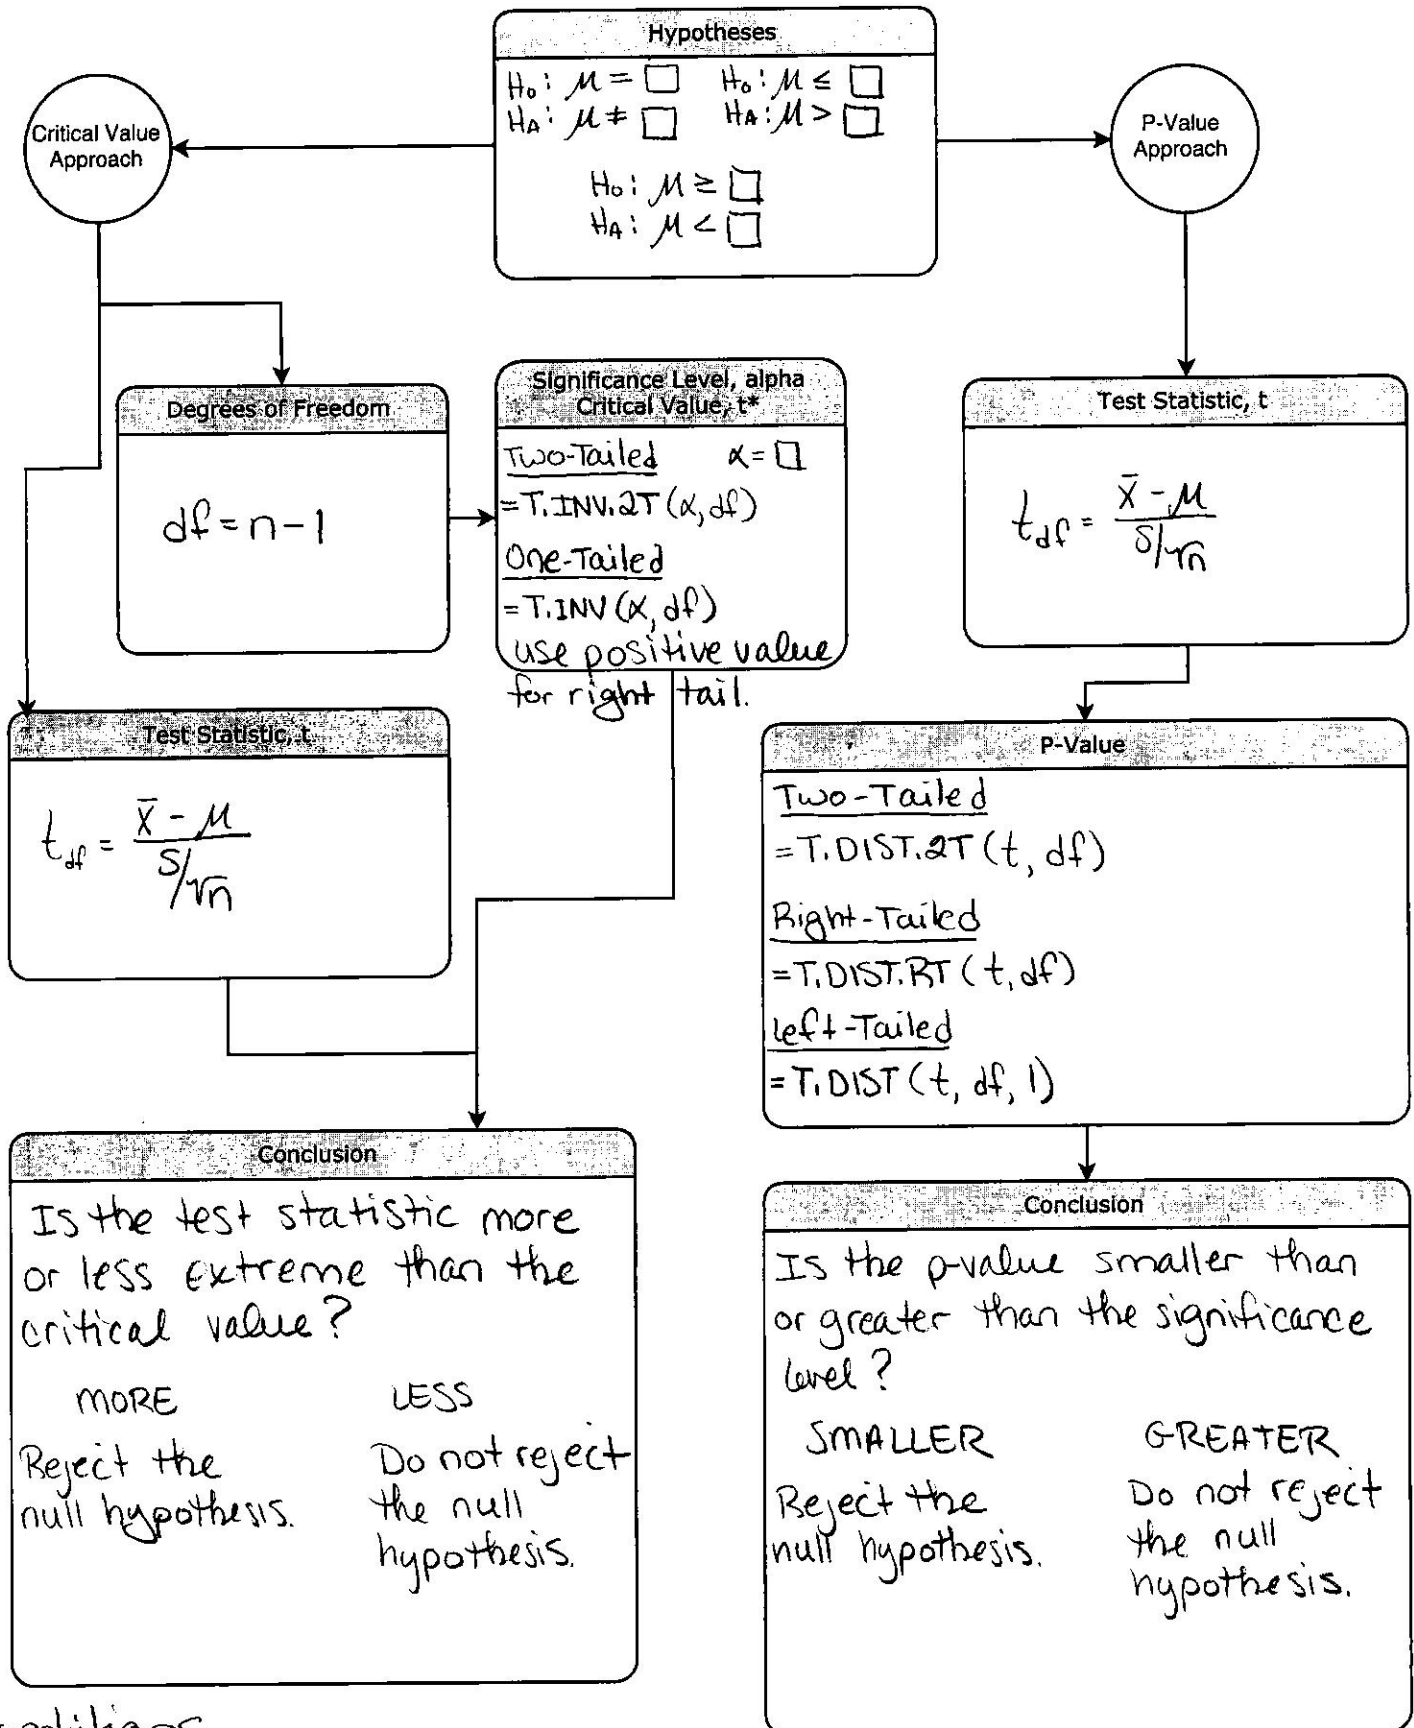 Hypotheses
H₀: μ = □ H₀: μ ≤ □
H_A: μ ≠ □ H_A: μ > □
H₀: μ ≥ □
H_A: μ < □
Critical Value
Approach
P-Value
Approach
Degrees of Freedom
df = n - 1
Significance Level, alpha
Critical Value, t*
Two-Tailed α = □
=T.INV.2T(α, df)
One-Tailed
=T.INV(α, df)
use positive value
for right tail.
Test Statistic, t
t_df = (x̄ - μ) / (s/√n)
Test Statistic, t
t_df = (x̄ - μ) / (s/√n)
P-Value
Two-Tailed
=T.DIST.2T(t, df)
Right-Tailed
=T.DIST.RT(t, df)
Left-Tailed
=T.DIST(t, df, 1)
Conclusion
Is the test statistic more
or less extreme than the
critical value?
MORE LESS
Reject the Do not reject
null hypothesis. the null
hypothesis.
Conclusion
Is the p-value smaller than
or greater than the significance
level?
SMALLER GREATER
Reject the Do not reject
null hypothesis. the null
hypothesis.